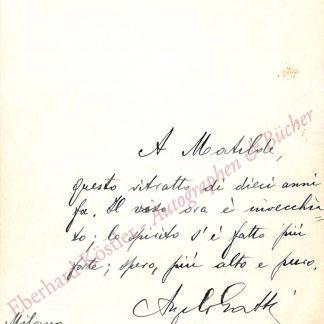 A Matilde,
questo ritratto di dieci anni
fa. Il viso ora è invecchia=
to; lo spirito s'è fatto più
forte; spero, più alto e puro.
Angelo Gatti
Milano
Eberhard Köstler Autographen & Bücher